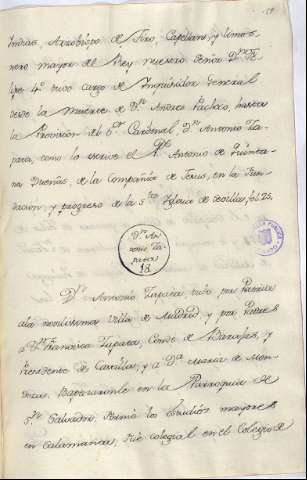 Indias, Arzobispo de Tiro, Capellan, y limos
nero mayor del Rey nuestro Señor Dn. Fe
lipe 4º. tuvo cargo de Inquisidor General
desde la muerte de Dn. Andres Pacheco, hasta
la Provision del Cardenal, Dn. Antonio Za-
pata, como lo escrive el Pe. Antonio de Quinta-
na Dueñas, de la Compañia de Jesus, en la Fun-
dacion, y progreso de la Sta. Iglesia de Sevilla fol. 25.
Dn. An
tonio Za-
pata
18.
Dn. Antonio Zapata, tubo por Patria
ala novilisima Villa de Madrid, y por Padres
a Dn. Francisco Zapata, Conde de Barajas, y
Presidente de Castilla, y a Dª. Maria de Men-
doza. Baptizaronle en la Parroquia de
Sn. Salvador. Pasó los Estudios mayores
en Salamanca, fue colegial en el Colegio de